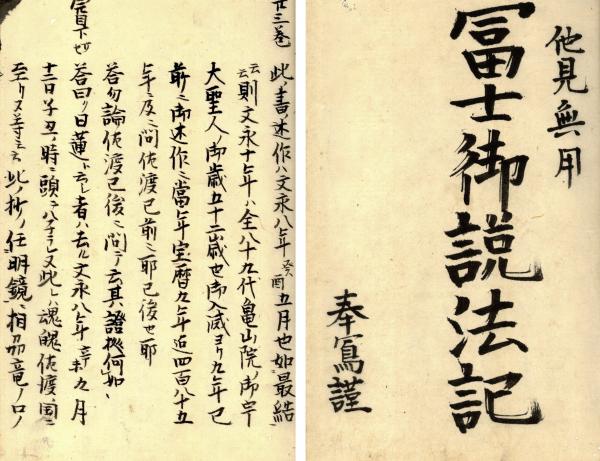 他見無用
冨士御説法記
奉寫謹
廿三巻
此ノ書ノ述作ハ文永八年癸酉五月也如最結
云云則文永十年ハ全八十九代亀山院ノ御宇
大聖人ノ御歳五十二歳也御入滅ヨリ九年已
前ニ御述作ニ當年宝暦九年迄四百八十五
年ニ及ニ問佐渡已前ニ耶已後也耶
答勿論佐渡已後ニ問テ云其證拠何如
答曰ク日蓮ト云シ者ハ去ル文永八年辛未九月
十二日子丑ノ時ニ頭ハ子ラレ又此レハ魂魄佐渡ノ國ニ
至リヌ等云云此ノ抄ノ任明鏡ニ相 竜ノ口ノ